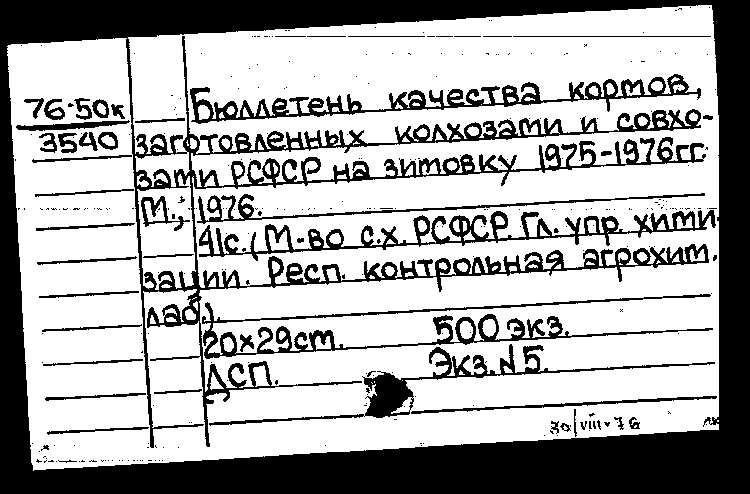 76-50к
3540
Бюллетень качества кормов,
заготовленных колхозами и совхо-
зами РСФСР на зимовку 1975-1976гг.
М., 1976.
41с. (М-во с.х. РСФСР. Гл. упр. хими-
зации. Респ. контрольная агрохим.
лаб.).
20×29см. 500 экз.
ДСП. Экз. N 5.
30/viii-76